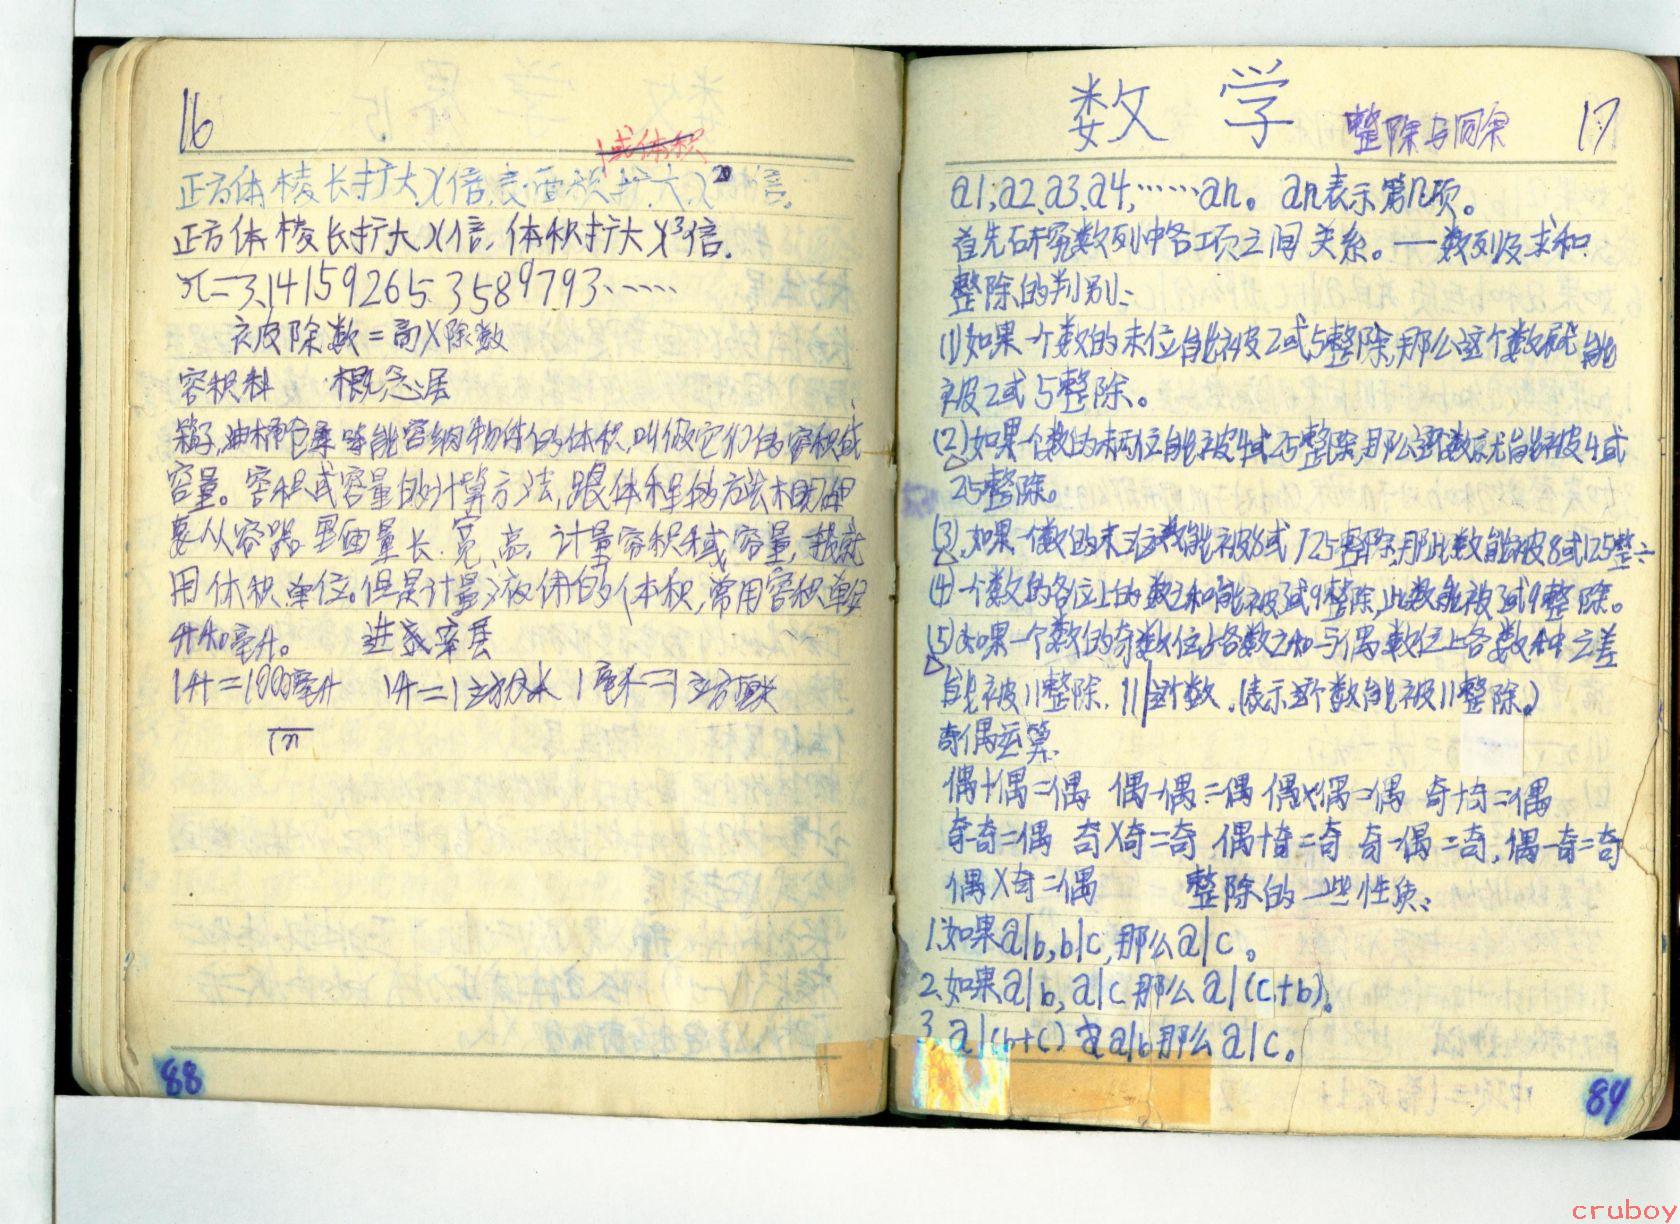 16
或体积
正方体棱长扩大X倍,表面积扩大X²倍。
正方体棱长扩大X倍,体积扩大X³倍.
π=3.141592653589793……
被除数=商X除数
容积科 概念层
箱子,油桶仓库等能容纳物体的体积,叫做它们的容积或
容量。容积或容量的计算方法,跟体积的方法相同但
要从容器里面量长.宽.高.计量容积或容量,一般就
用体积单位。但是计量液体的体积,常用容积单位
升和毫升。 进率层
1升=1000毫升 1升=1立方分米 1毫升=1立方厘米
88
数学 整除与同余 17
a1,a2,a3,a4,……an。an表示第n项。
首先研究数列中各项之间关系。一数列及求和
整除的判别:
(1)如果一个数的末位能被2或5整除,那么这个数就能
被2或5整除。
(2)如果一个数的末两位能被4或25整除,那么这个数就能被4或
25整除。
(3).如果一个数的末三位数能被8或125整除,那此数能被8或125整÷
(4)一个数的各位上的数之和能被3或9整除,此数能被3或9整除。
(5)如果一个数的奇数位上各数之和与偶数位上各数和之差
能被11整除.11|这个数.(表示这个数能被11整除。)
奇偶运算.
偶+偶=偶 偶-偶=偶 偶X偶=偶 奇+奇=偶
奇-奇=偶 奇X奇=奇 偶+奇=奇 奇-偶=奇,偶-奇=奇
偶X奇=偶 整除的一些性质:
1.如果a|b,b|c,那么a|c。
2.如果a|b,a|c那么a|(c+b)。
3.a|(b+c) a|b那么a|c。
84
cruboy